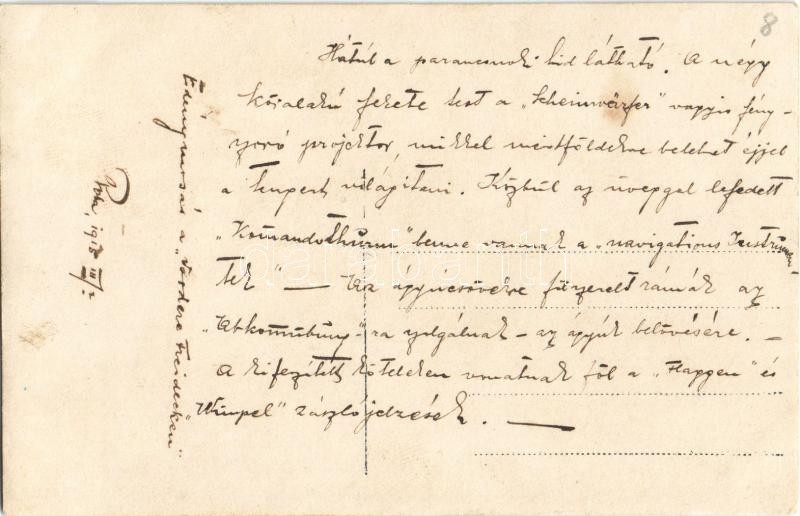 8
Hátúl a parancsnoki hid látható. A négy
kóralakú fekete test a „Scheinwerfer" vagyis fény-
szoró projektor, mikkel mérföldekre belehet éjjel
a tengert világitani. Középül az üveggel lefedett
„Komandothurm" benne vannak a „navigations Instrumen-
tek" — Az ágyúcsövekre füzerelt rámák az
„Abkommübung"-ra szolgálnak – az ágyúk belövésére. –
A kifeszített köteleken vonatnak föl a „Flaggen" és
„Wimpel" zászlójelzések. —
Edénymosás a „Vordere Freidecken"
Pola, 1913 III/2